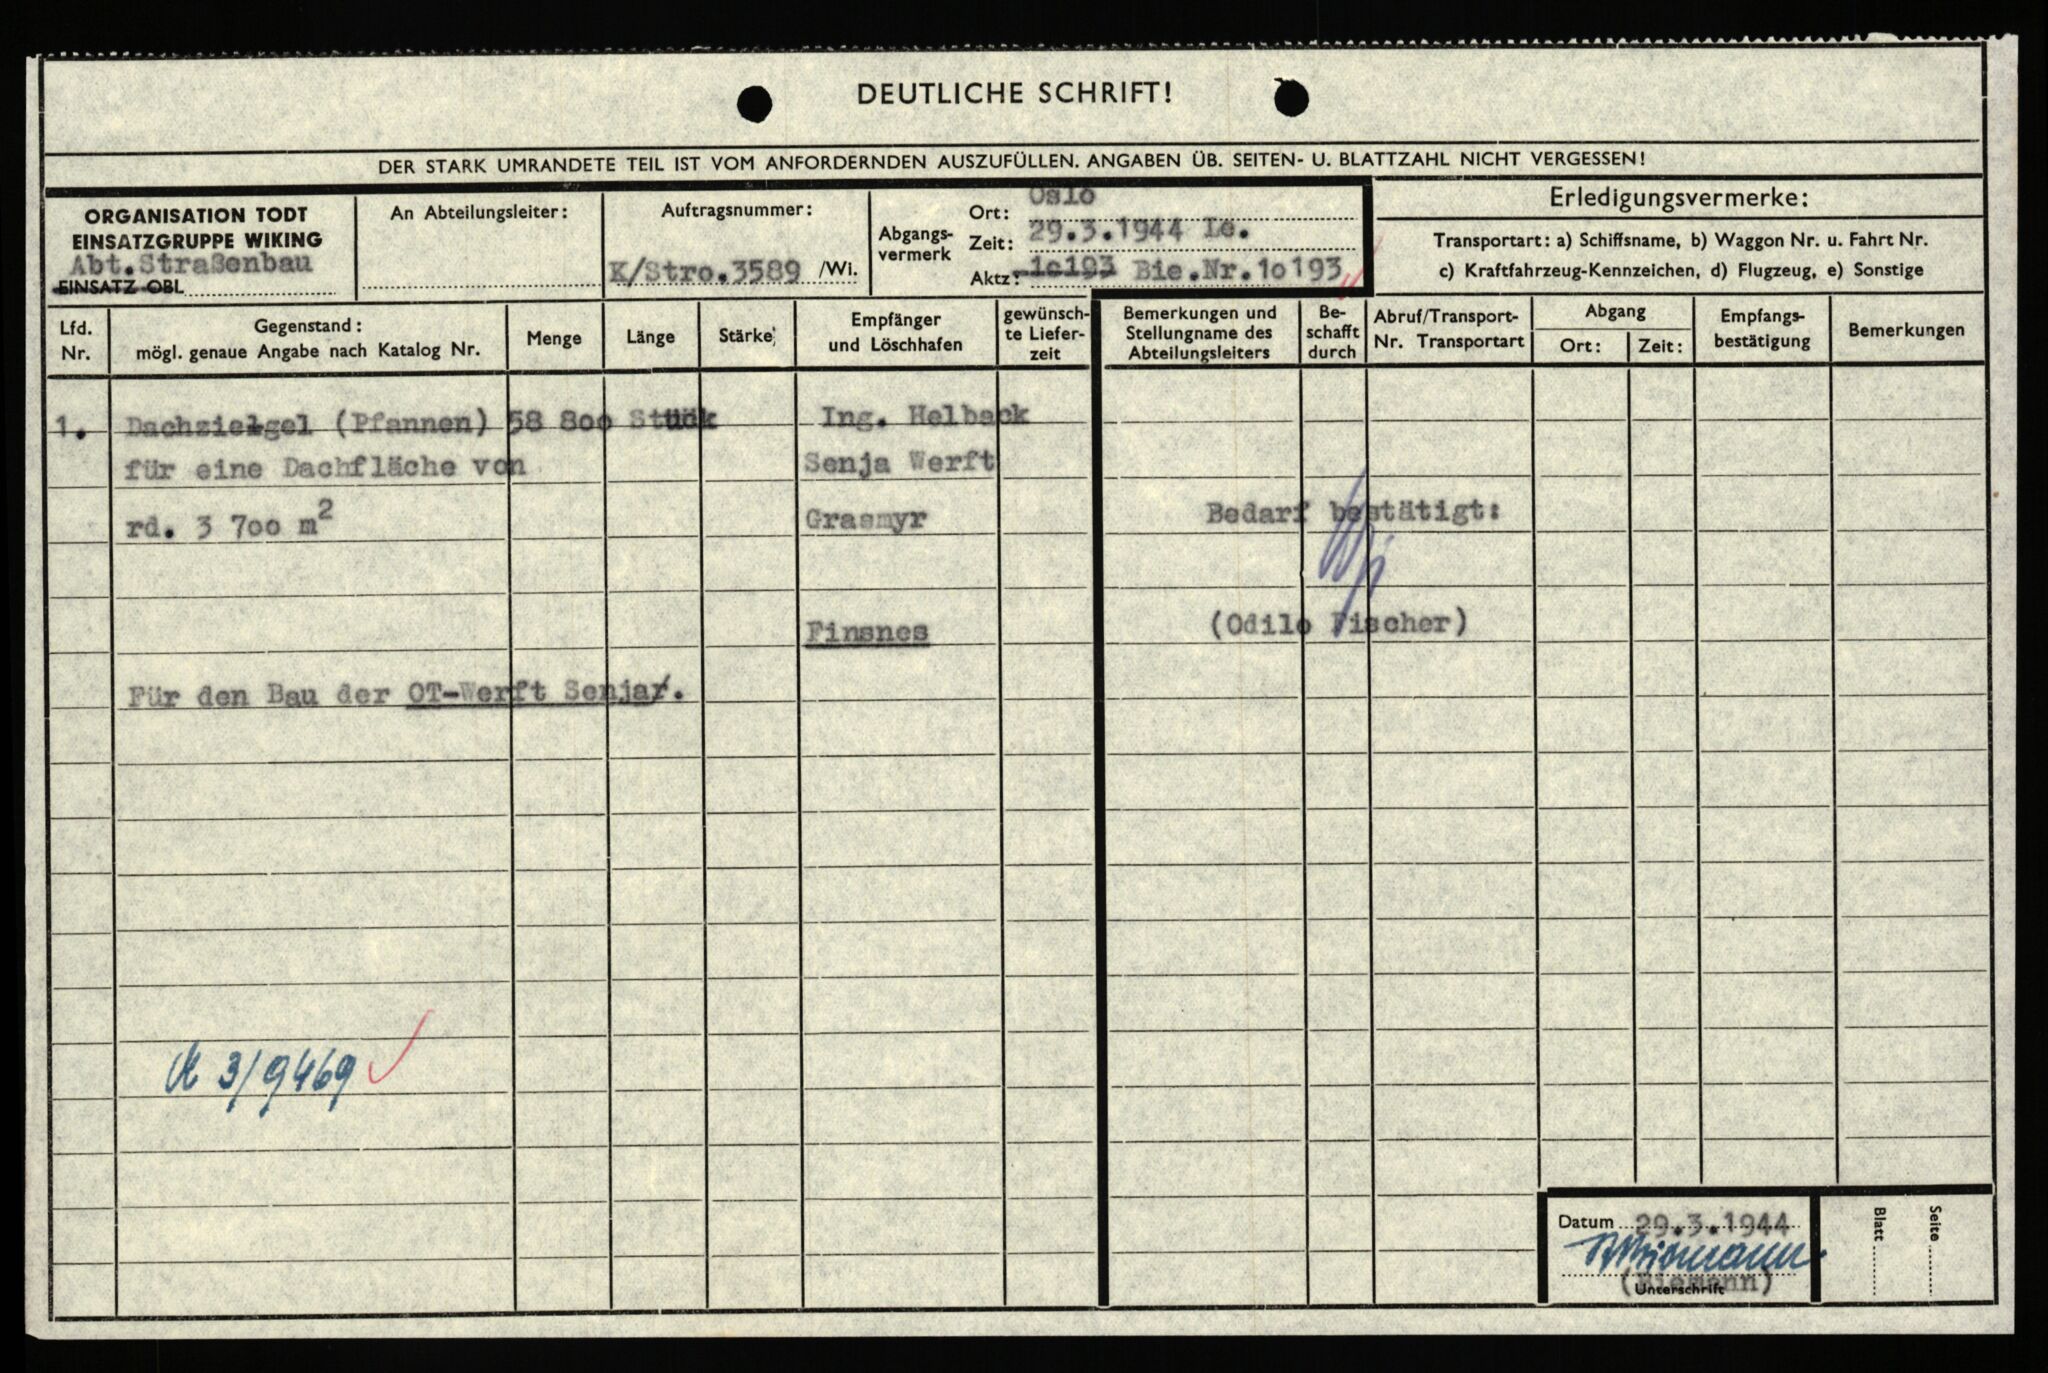 DEUTLICHE SCHRIFT!
DER STARK UMRANDETE TEIL IST VOM ANFORDERNDEN AUSZUFÜLLEN. ANGABEN ÜB. SEITEN- U. BLATTZAHL NICHT VERGESSEN!
ORGANISATION TODT
EINSATZGRUPPE WIKING
Abt.Straßenbau
EINSATZ OBL
An Abteilungsleiter:
Auftragsnummer:
K/Stro.3589 /Wi.
Abgangs-
vermerk
Ort: Oslo
Zeit: 29.3.1944 Le.
Aktz: 1o193 Bie.Nr.1o193
Erledigungsvermerke:
Transportart: a) Schiffsname, b) Waggon Nr. u. Fahrt Nr.
c) Kraftfahrzeug-Kennzeichen, d) Flugzeug, e) Sonstige
Lfd.
Nr.
Gegenstand:
mögl. genaue Angabe nach Katalog Nr.
Menge
Länge
Stärke
Empfänger
und Löschhafen
gewünsch-
te Liefer-
zeit
Bemerkungen und
Stellungname des
Abteilungsleiters
Be-
schafft
durch
Abruf/Transport-
Nr. Transportart
Abgang
Ort: Zeit:
Empfangs-
bestätigung
Bemerkungen
1. Dachzielgel (Pfannen) 58 8oo Stück Ing. Helback
für eine Dachfläche von Senja Werft
rd. 3 7oo m2 Grasmyr Bedarf bestätigt:
Finsnes (Odilo Fischer)
Für den Bau der OT-Werft Senjar.
K 3/9469
Datum 29.3.1944
(Biemann)
Unterschrift
Blatt
Seite